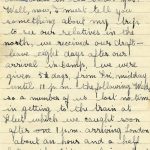 Well, now, I must tell you
something about my trip
to see our relatives in the
north, we received our draft-
leave eight days after our
arrival in camp, we were
given 5½ days from Fri. midday
until 12 p.m. the following Wed,
so a number of us lost no time
in getting to the train at
which we caught soon
after one p.m. arriving London
about an hour and a half